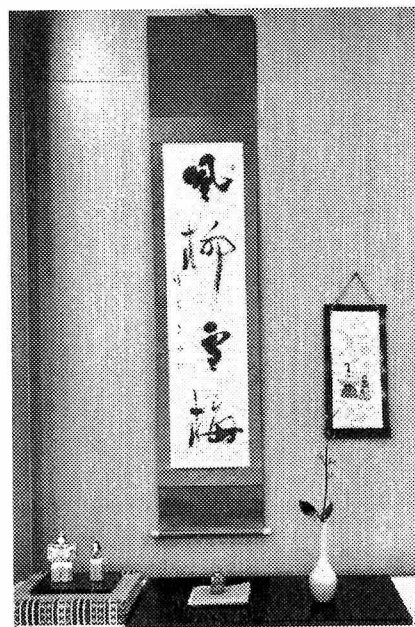 風柳雪梅